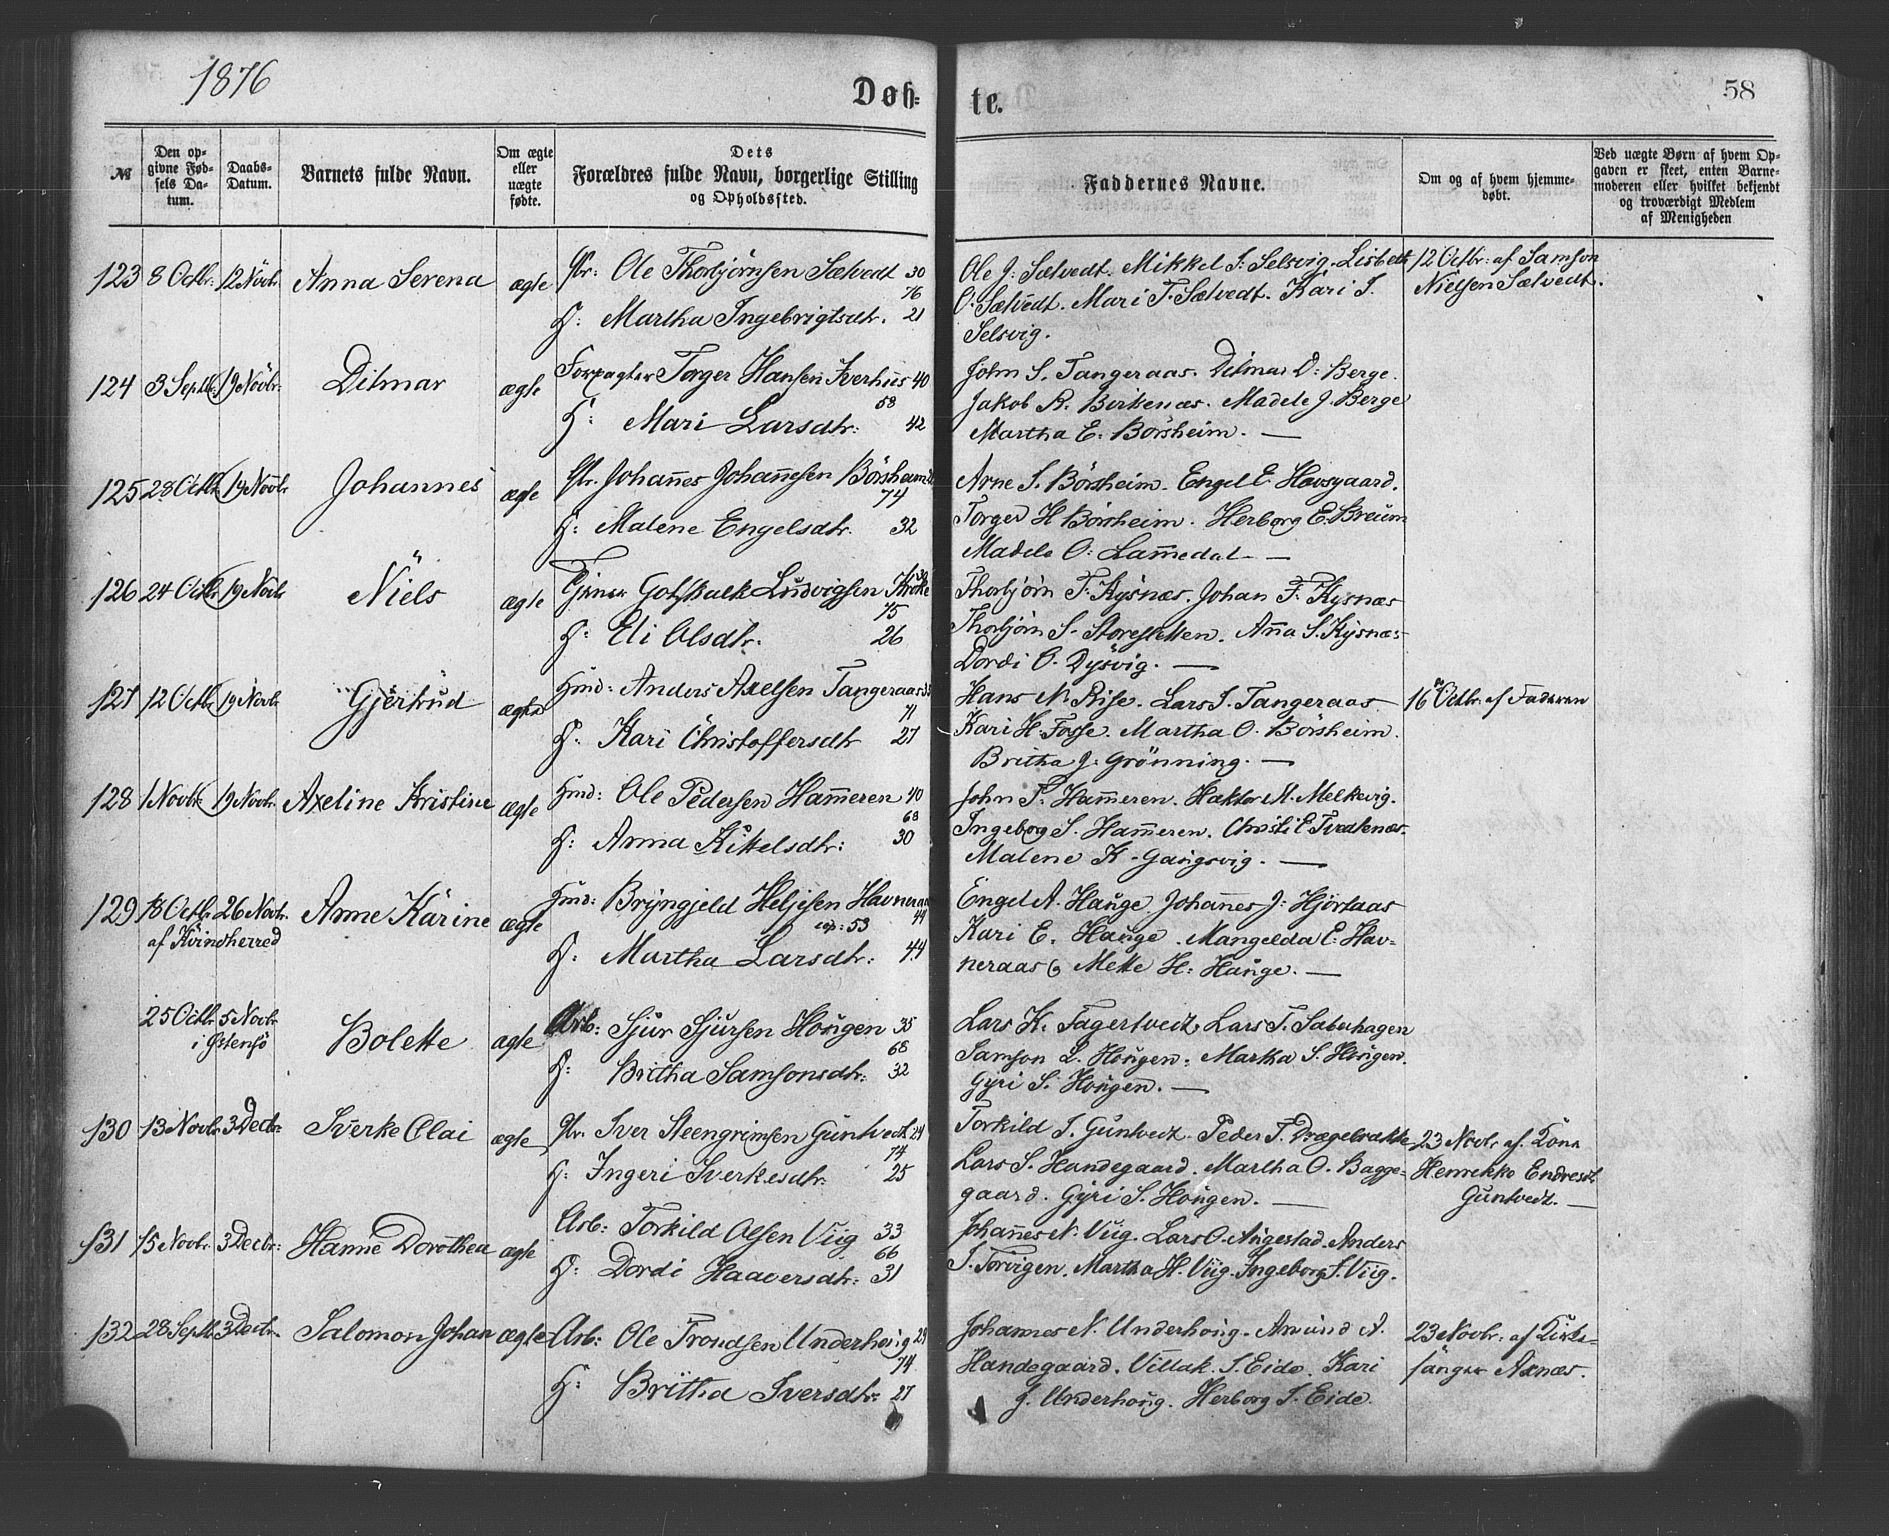 1876
Døb-
te.
58
№
Den op-
givne Fød-
sels Da-
tum.
Daabs-
Datum.
Barnets fulde Navn.
Om ægte
eller
uægte
fødte.
Dets
Forældres fulde Navn, borgerlige Stilling
og Opholdssted.
Faddernes Navne.
Om og af hvem hjemme-
døbt.
Ved uægte Børn af hvem Op-
gaven er skeet, enten Barne-
moderen eller hvilket bekjendt
og troværdigt Medlem
af Menigheden
123 8 Octbr: 12 Novbr Anna Serena ægte Gbr: Ole Thorbjørnsen Sælvedt 30
76
H: Martha Ingebrigtsdtr. 21
Ole J: Sælvedt. Mikkel S: Selsvig. Lisbeth
O. Sælvedt. Mari T. Sælvedt. Kari I.
Selsvig.
12 Octbr: af Samson
Nielsen Sælvedt.
124 3 Septbr. 19 Novbr. Ditmar ægte Forpagter Torger Hansen Iverhus 40
58
H: Mari Larsdtr: 42
John S. Tangeraas. Ditmar D: Berge.
Jakob R. Birkenæs. Madele J. Berge
Martha E. Børsheim. —
125 28 Octbr 19 Novbr Johannes ægte Gbr. Johannes Johannesen Børsheim
74
H: Malene Engelsdtr. 32
Arne S. Børsheim. Engel E. Hovsgaard.
Torger H Børsheim. Herborg E. Breum
Madele O. Lammedal. —
126 24 Octbr 19 Novbr Niels ægte Tjener Gotskalk Ludvigsen Kroke
75
H: Eli Olsdtr. 26
Thorbjørn T. Kysnæs. Johan F. Kysnæs
Thorbjørn S. Storesletten. Anna S. Kysnæs
Dordi O. Dysvig. —
127 12 Octbr 19 Novbr Gjertrud ægte Hmd: Anders Axelsen Tangeraas 33
71
H: Kari Christoffersdtr 27
Hans N. Riise. Lars I. Tangeraas
Kari H. Fosse. Martha O. Børsheim.
Britha J. Grønning. —
16 Octbr: af Faderen
128 1 Novbr 19 Novbr. Axeline Kristine ægte Hmd: Ole Pedersen Hammeren 40
68
H: Anna Kittelsdtr: 30
John P. Hammeren. Haktor M. Melkevig.
Ingeborg S. Hammeren. Christi E. Tvedtenæs.
Malene K. Gangsvig. —
129 18 Octbr 26 Novbr. Anne Karine ægte Hmd: Bryngjeld Heljesen Havneraas
af Kvindherred
cop: 53 44
H: Martha Larsdtr: 44
Engel A. Hauge. Johannes J: Hjortaas
Kari E. Hauge. Mangelda E. Hav-
neraas Mette H. Hauge. —
25 Octbr. 5 Novbr Bolette ægte Arb: Sjur Sjursen Hougen 35
i Østensø
68
H: Britha Samsonsdtr: 32
Lars K. Fagertvedt. Lars T. Saberhagen
Samson L. Hougen. Marka S. Hougen.
Gyri S. Hougen. —
130 13 Novbr 3 Decbr. Sverke Olai ægte Gbr. Iver Steengrimsen Guntvedt 24
74
H: Ingeri Sverkesdtr. 25
Torkild I. Guntvedt. Peder T. Drægebrække
Lars S. Handegaard. Martha O. Bagge-
gaard. Gyri S. Hougen. —
23 Novbr. af Kone
Henrekke Endresdt.
Guntvedt. —
131 15 Novbr. 3 Decbr: Hanne Dorothea ægte Arb: Torkild Olsen Viig 33
66
H: Dordi Haaversdtr: 31
Johannes N. Viig. Lars O. Augestad. Anders
I. Torvigen. Martha H. Viig. Ingeborg S. Viig.
132 28 Septbr 3 Decbr. Salomon Johan ægte Arb: Ole Trondsen Underhoug 29
74
H: Britha Iversdtr: 27
Johannes N. Underhoug. Amund A.
Handegaard. Villak S. Eide. Kari
J. Underhoug. Herborg S. Eide.
23 Novbr: af Kirke-
sanger Axnæs.